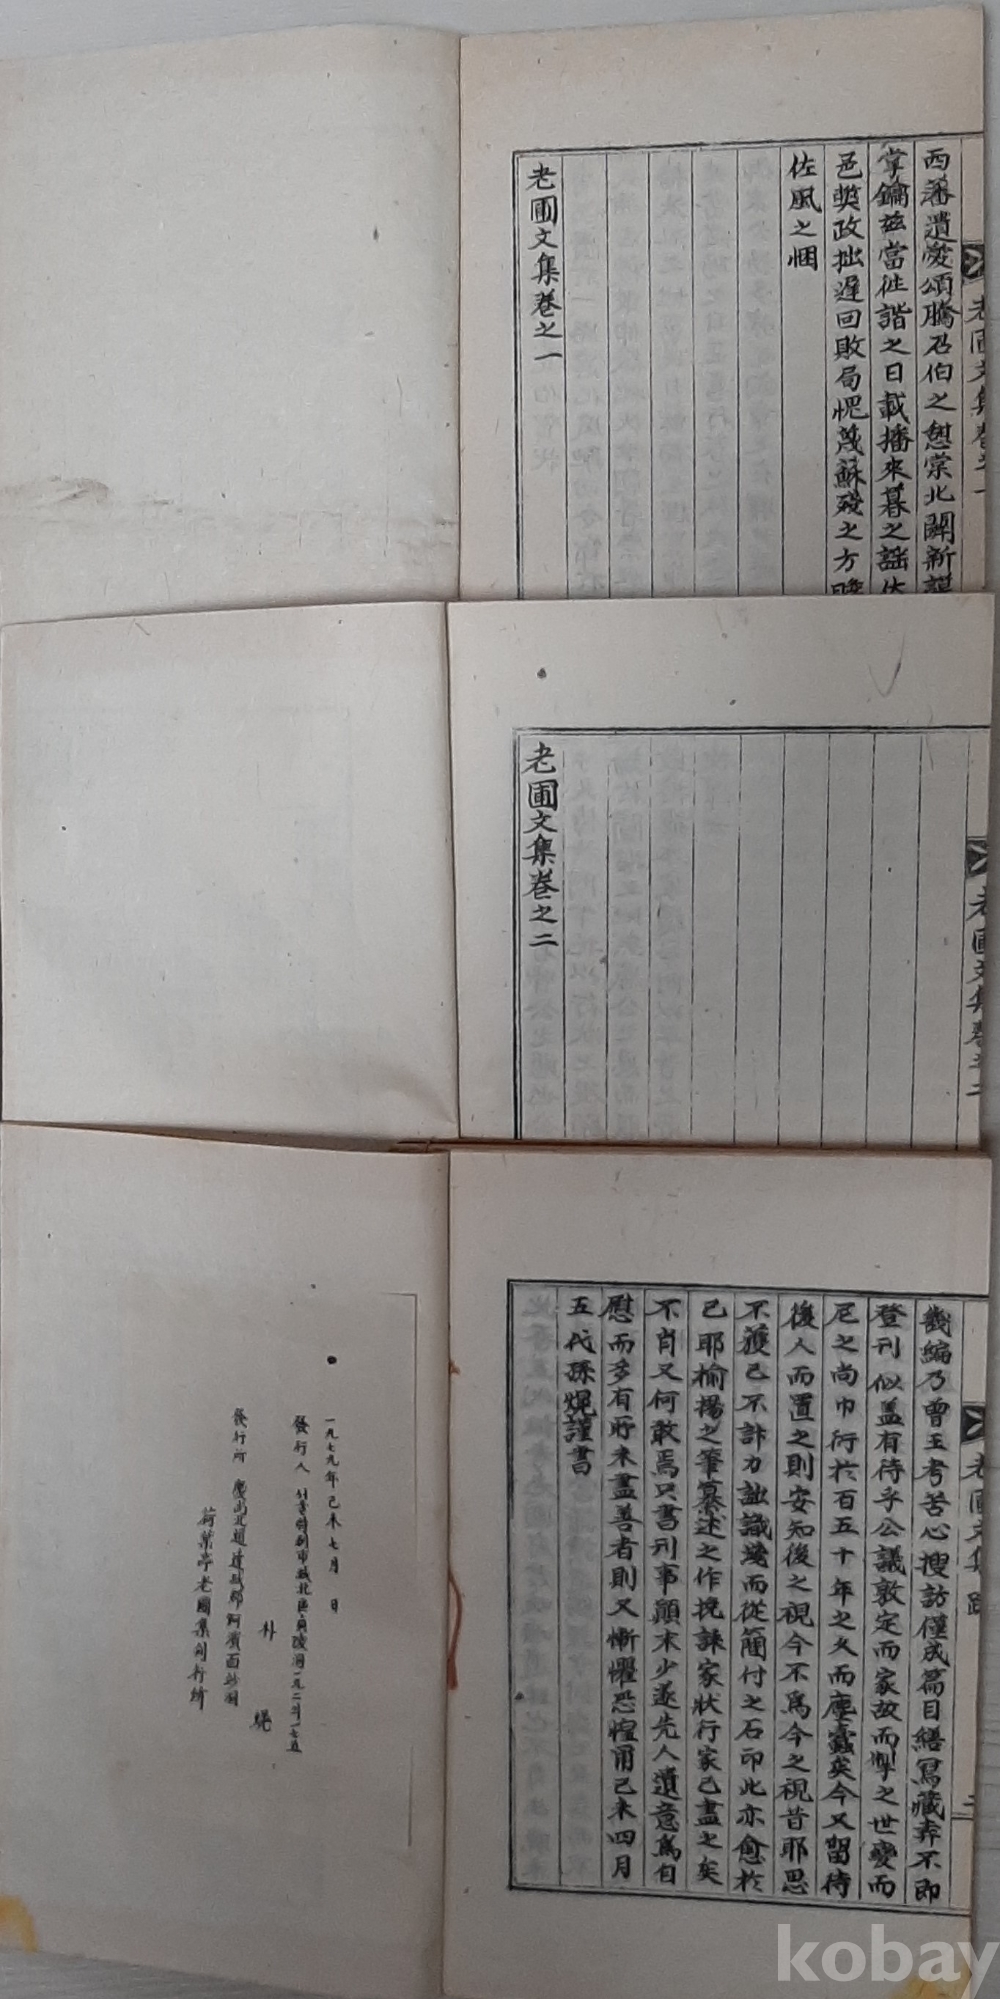 老圃文集卷之一
西藩遺愛頌騰召伯之憩棠北闕新
掌鑰玆當徃諧之日載播來暮之謠
邑獎政拙遲回敗局慌蔑蘇殘之方
佐風之悃
老圃文集卷之一
老圃文集卷之二
老圃文集卷之二
老圃文集 跋 二
幾編乃曾王考苦心搜訪僅成篇目繕寫藏弆不即
登刊似盖有待乎公議敦定而家故而掣之世變而
尼之尚巾衍於百五十年之久而塵蠹矣今又留待
後人而置之則安知後之視今不爲今之視昔耶思
不獲已不計力詘識淺而從簡付之石印此亦愈於
已耶揄揚之筆纂述之作挽誄家狀行家已盡之矣
不肖又何敢焉只書刊事顚末少遂先人遺意爲自
慰而多有所未盡善者則又慚懼恐惶甭己未四月
五代孫焜謹書
一九七九年己未七月 日
發行人 서울特別市城北區貞陵洞一九二의一七五
朴 焜
發行所 慶尚北道達城郡河濱面妙洞
荷葉亭老圃集刊行所
kobay